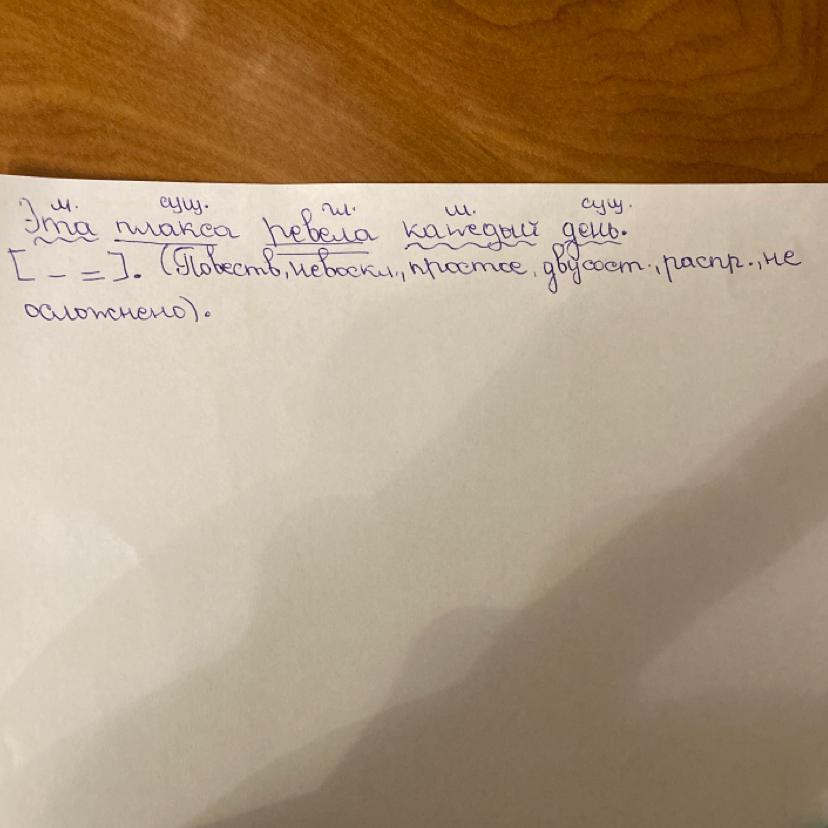 м. сущ. гл. м. сущ.
Эта плакса ревела каждый день.
[ _ = ]. (Повеств., невоскл., простое, двусост., распр., не
осложнено).